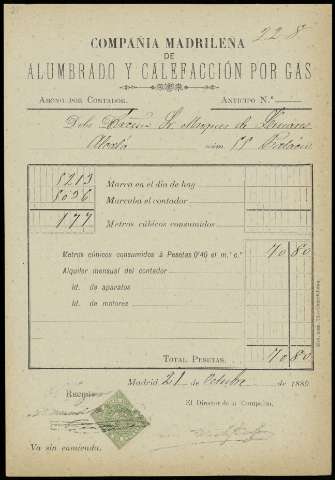 228
COMPAÑIA MADRILEÑA
DE
ALUMBRADO Y CALEFACCIÓN POR GAS
ABONO POR CONTADOR. ANTICIPO N.º
Debe Excmo Sr. Marques de
Alcalá núm.
8213 Marca en el día de hoy
8036 Marcaba el contador
177 Metros cúbicos consumidos
Metros cúbicos consumidos á Pesetas 0'40 el m.³ c.º 70 80
Alquiler mensual del contador
Id. de aparatos
Id. de motores
TOTAL PESETAS. 70 80
Madrid 21 de Octubre de 188
RECIBÍ
El Director de la Compañía,
Va sin enmienda.